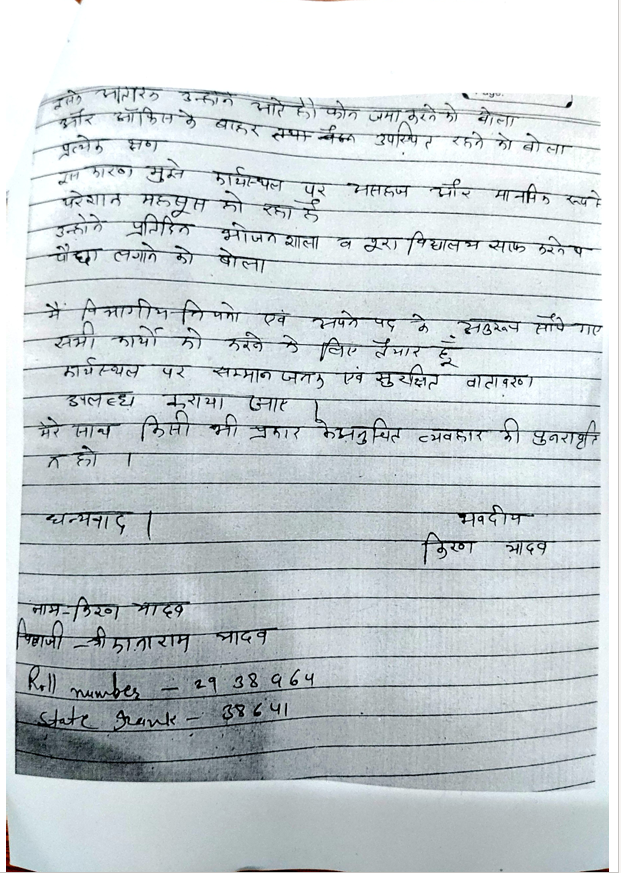 इसके अतिरिक्त उन्होंने आते ही फोन जमा करने को बोला
और ऑफिस के बाहर उपस्थित रहने को बोला
प्रत्येक क्षण
इस कारण मुझे कार्यस्थल पर असहज और मानसिक रूप से
परेशान महसूस हो रहा है
उन्होंने प्रतिदिन भोजनशाला व पूरा विद्यालय साफ करने व
पौधा लगाने को बोला
मैं विभागीय नियमों एवं अपने पद के अनुरूप सौंपे गए
सभी कार्यों को करने के लिए तैयार हूँ
कार्यस्थल पर सम्मानजनक एवं सुरक्षित वातावरण
उपलब्ध कराया जाए |
मेरे साथ किसी भी प्रकार के अनुचित व्यवहार की पुनरावृत्ति
न हो |
धन्यवाद | भवदीय
किरण यादव
नाम - किरण यादव
पिताजी - श्री यादव
Roll number - 2938964
State - 38641